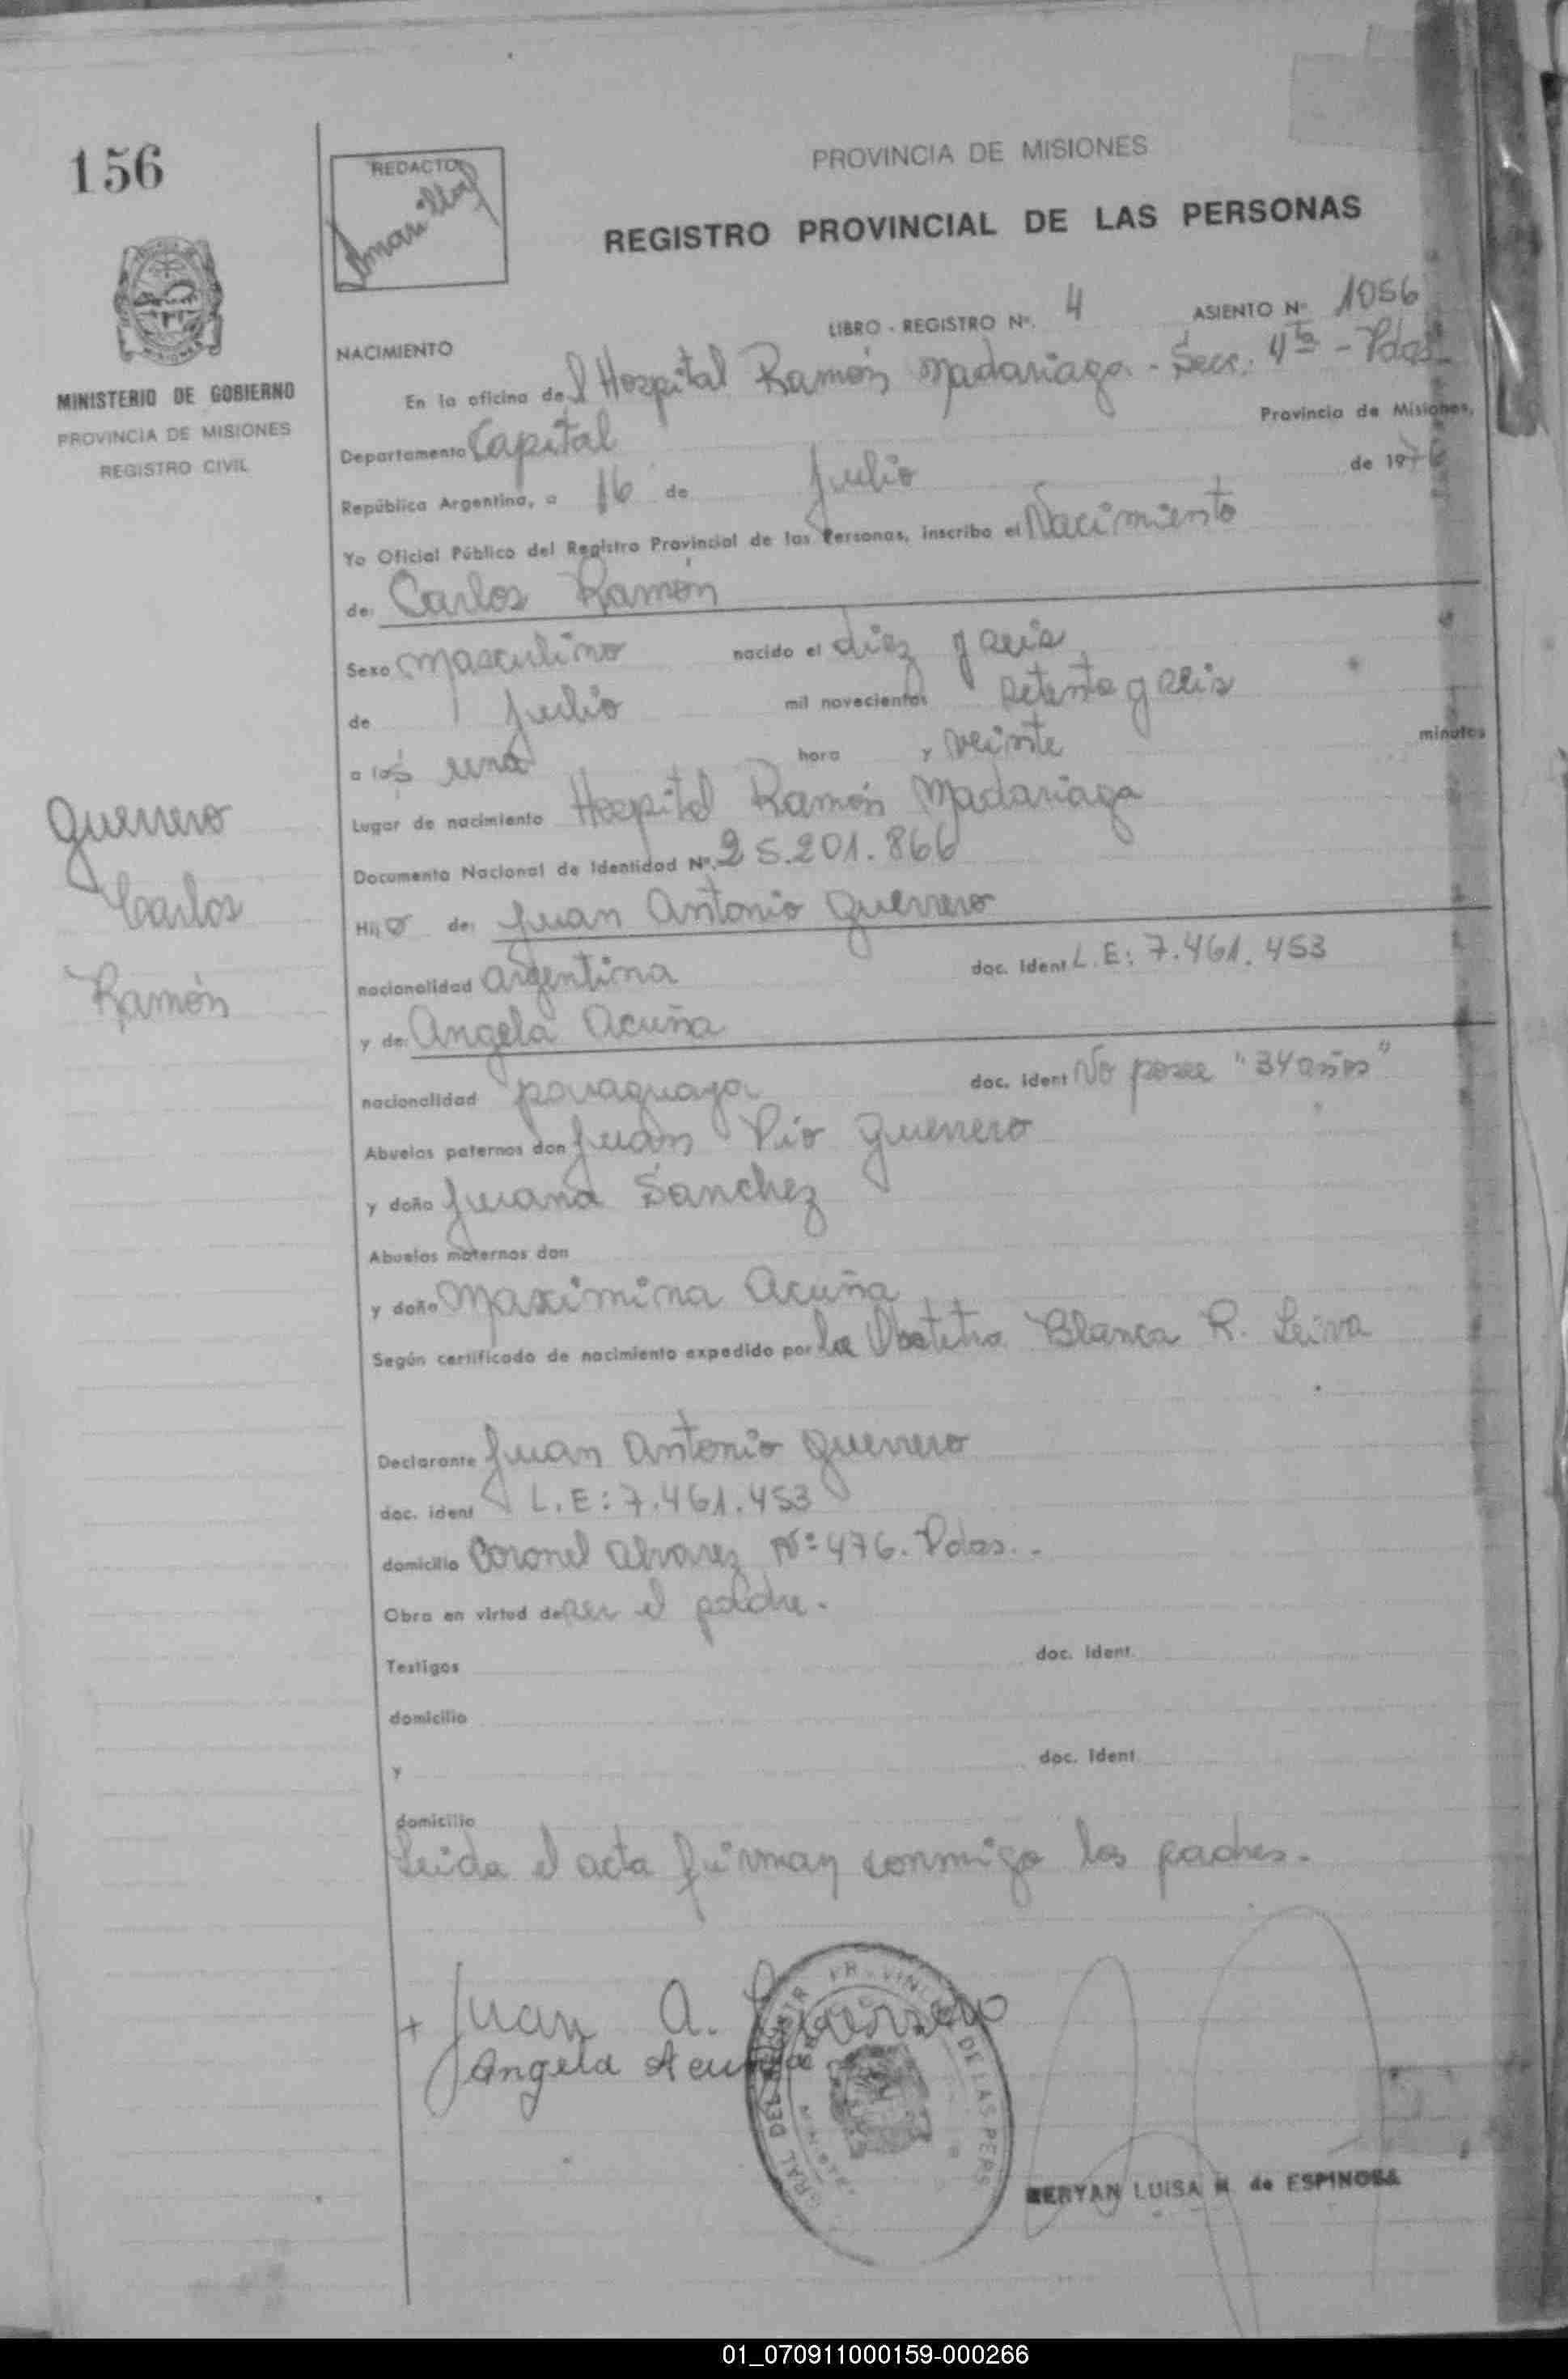 156
REDACTOR
PROVINCIA DE MISIONES
REGISTRO PROVINCIAL DE LAS PERSONAS
MINISTERIO DE GOBIERNO
PROVINCIA DE MISIONES
REGISTRO CIVIL
LIBRO - REGISTRO Nº. 4 ASIENTO Nº 1056
NACIMIENTO
En la oficina del Hospital Ramón Madariaga - Secc. 4ta - Pdas
Departamento Capital Provincia de Misiones,
República Argentina, a 16 de Julio de 1976
Yo Oficial Público del Registro Provincial de las Personas, inscribo el Nacimiento
de: Carlos Ramón
Sexo masculino nacido el diez y seis
de Julio mil novecientos setenta y seis
a las una hora y veinte minutos
Lugar de nacimiento Hospital Ramón Madariaga
Documento Nacional de Identidad Nº. 25.201.866
Hijo de: Juan Antonio Guerrero
nacionalidad argentina doc. Ident L.E: 7.461.453
y de: Angela Acuña
nacionalidad paraguaya doc. ident No posee "34 años"
Abuelos paternos don Juan Pío Guerrero
y doña Juana Sanchez
Abuelos maternos don
y doña Maximina Acuña
Según certificado de nacimiento expedido por la Obstetra Blanca R. Leiva
Declarante Juan Antonio Guerrero
doc. ident L.E: 7.461.453
domicilio Coronel Alvarez Nº 476. Pdas..
Obra en virtud de ser el padre.
Testigos doc. Ident.
domicilio
y doc. Ident
domicilio
Leida el acta firman conmigo los padres.
Guerrero
Carlos
Ramón
+ Juan A. Guerrero
Angela Acuña
MINISTE
LUISA M. de ESPINOSA
01_070911000159-000266